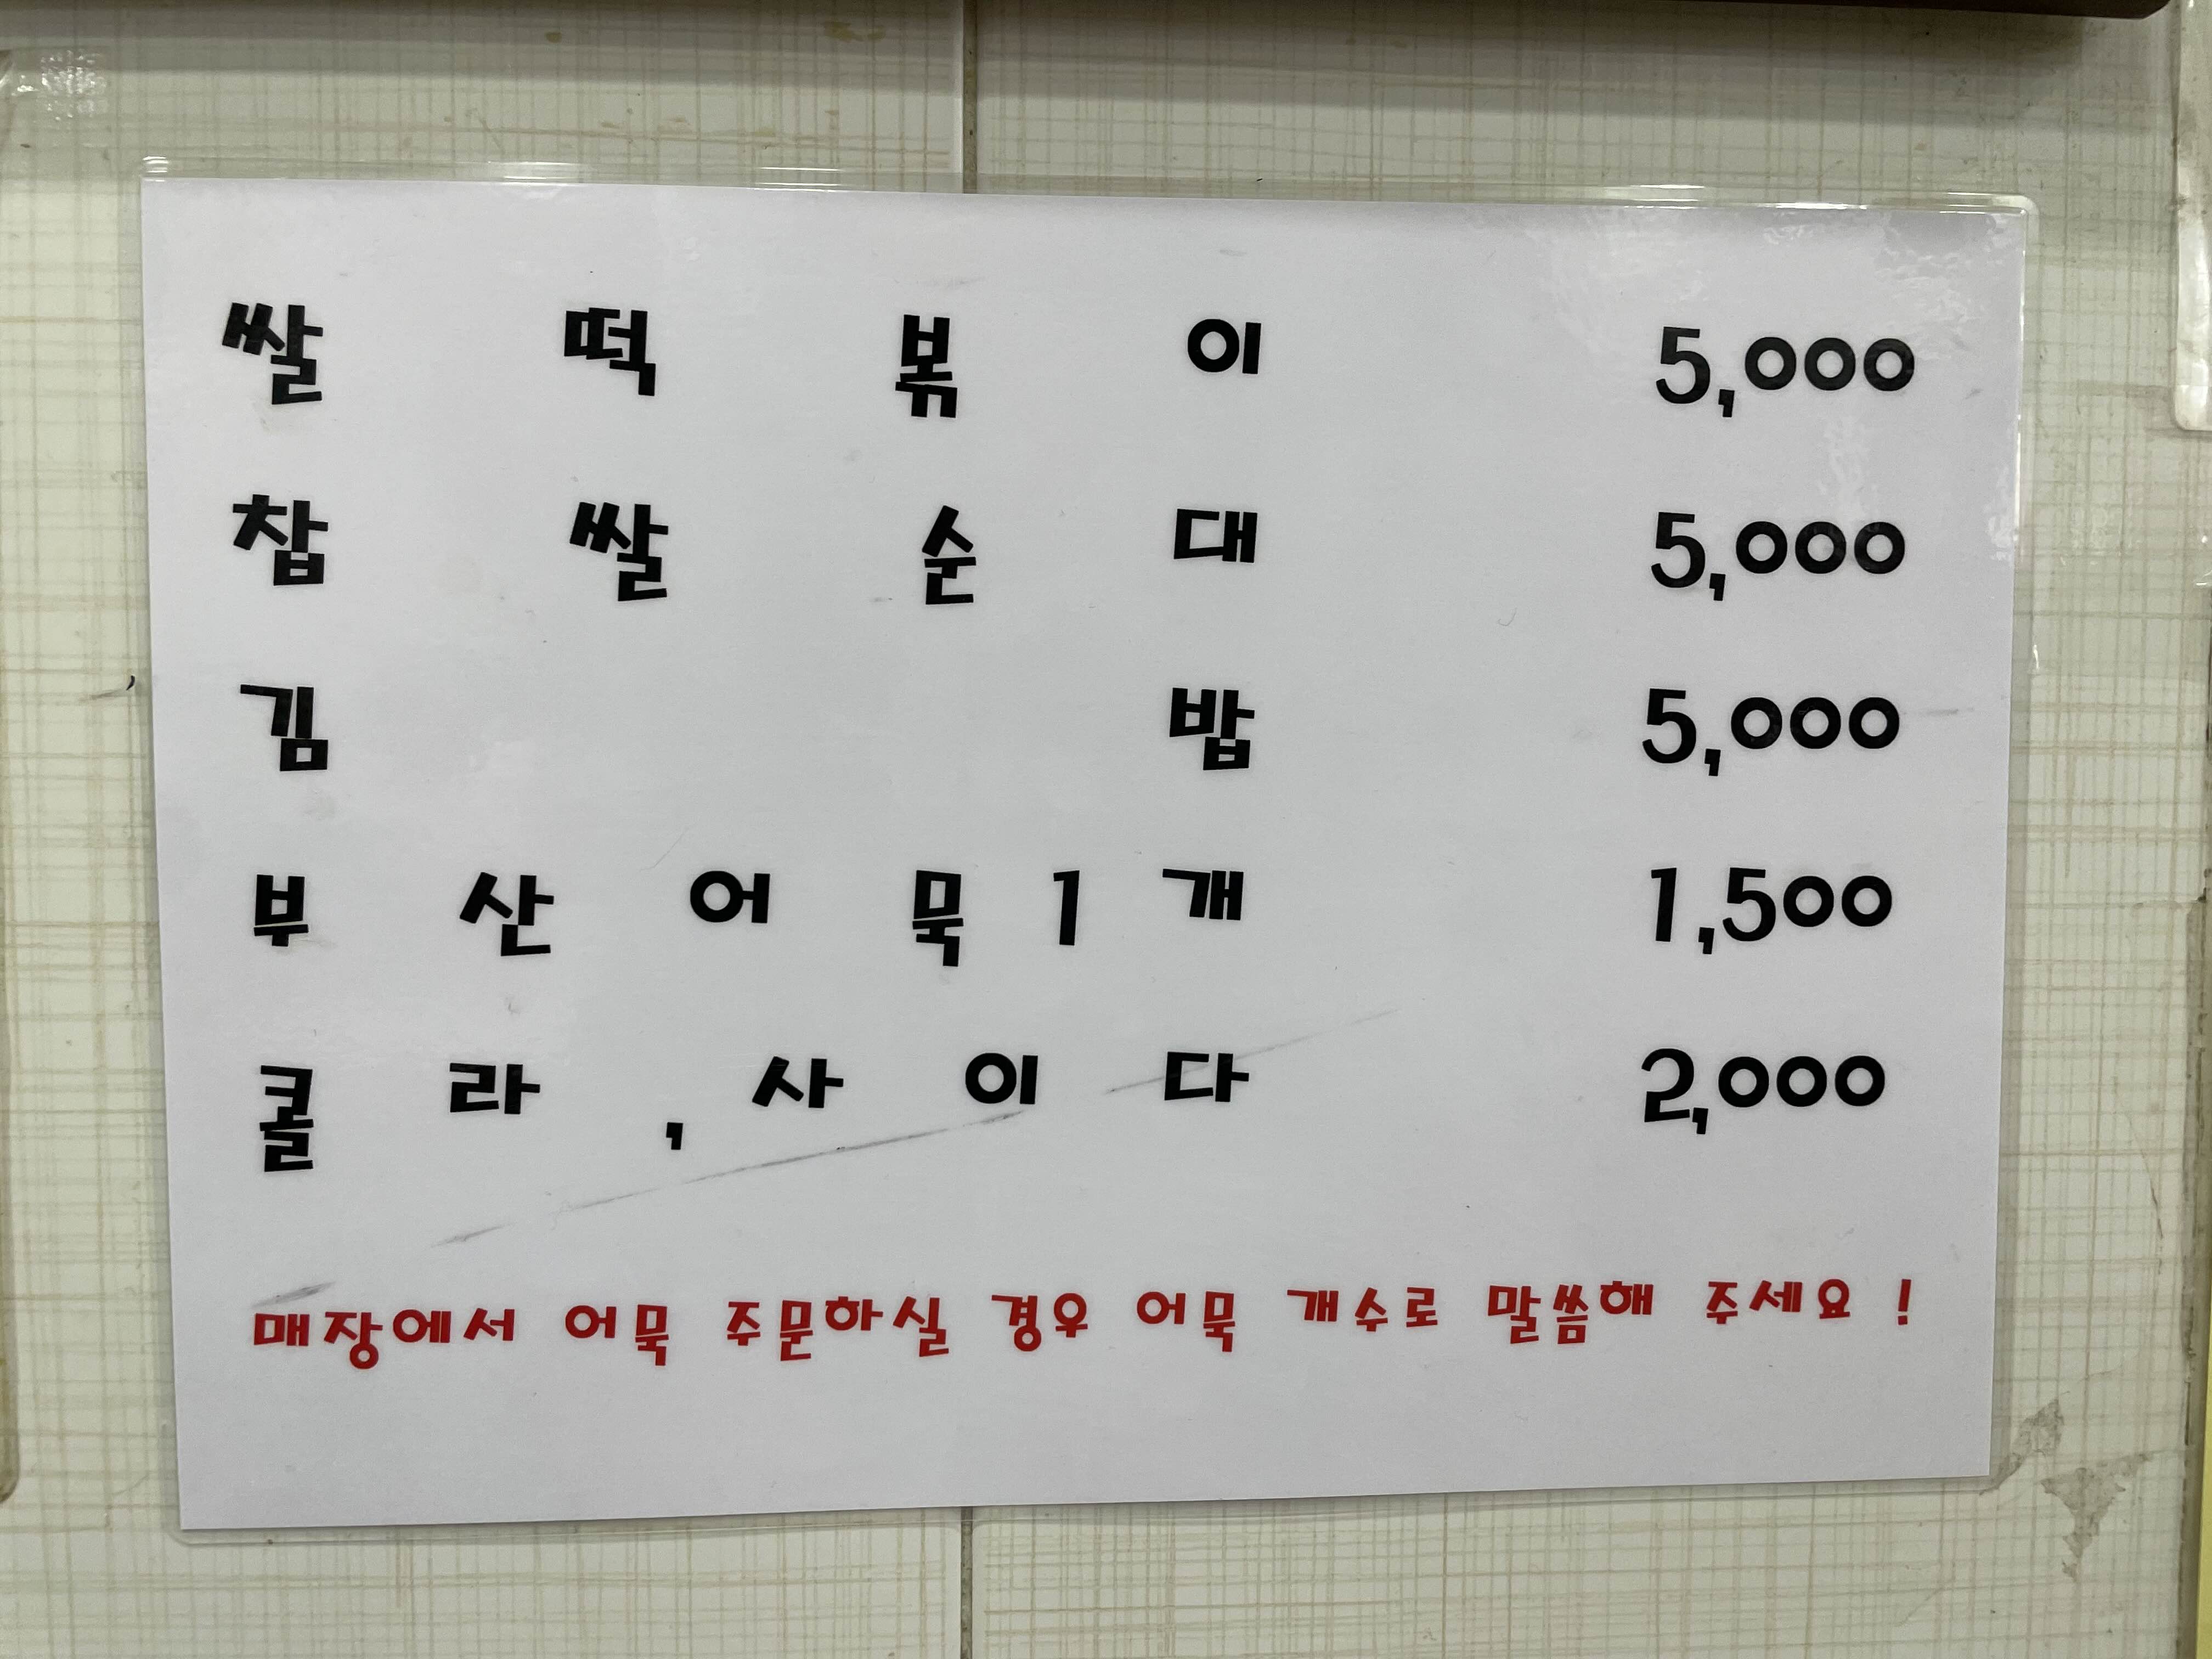 쌀떡볶이 5,000
찹쌀순대 5,000
김밥 5,000
부산어묵1개 1,500
콜라,사이다 2,000
매장에서 어묵 주문하실 경우 어묵 개수로 말씀해 주세요!